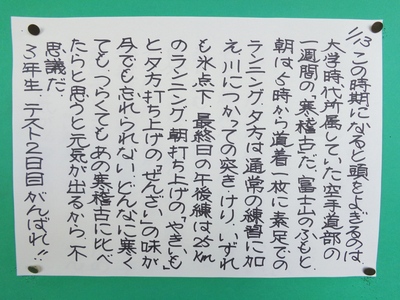 11/13 この時期になると頭をよぎるのは、
大学時代所属していた空手道部の
一週間の「寒稽古」だ。富士山のふもと、
朝は5時から道着一枚に素足での
ランニング、夕方は通常の練習に加
え、川につかっての突き、けり、いずれ
も氷点下。最終日の午後練は25km
のランニング。朝打ち上げの「やきいも」
と、夕方打ち上げの「ぜんざい」の味が
今でも忘れられない。どんなに寒く
ても、つらくてもあの寒稽古に比べ
たらと思うと元気が出るから、不
思議だ。
3年生、テスト2日目がんばれ!!